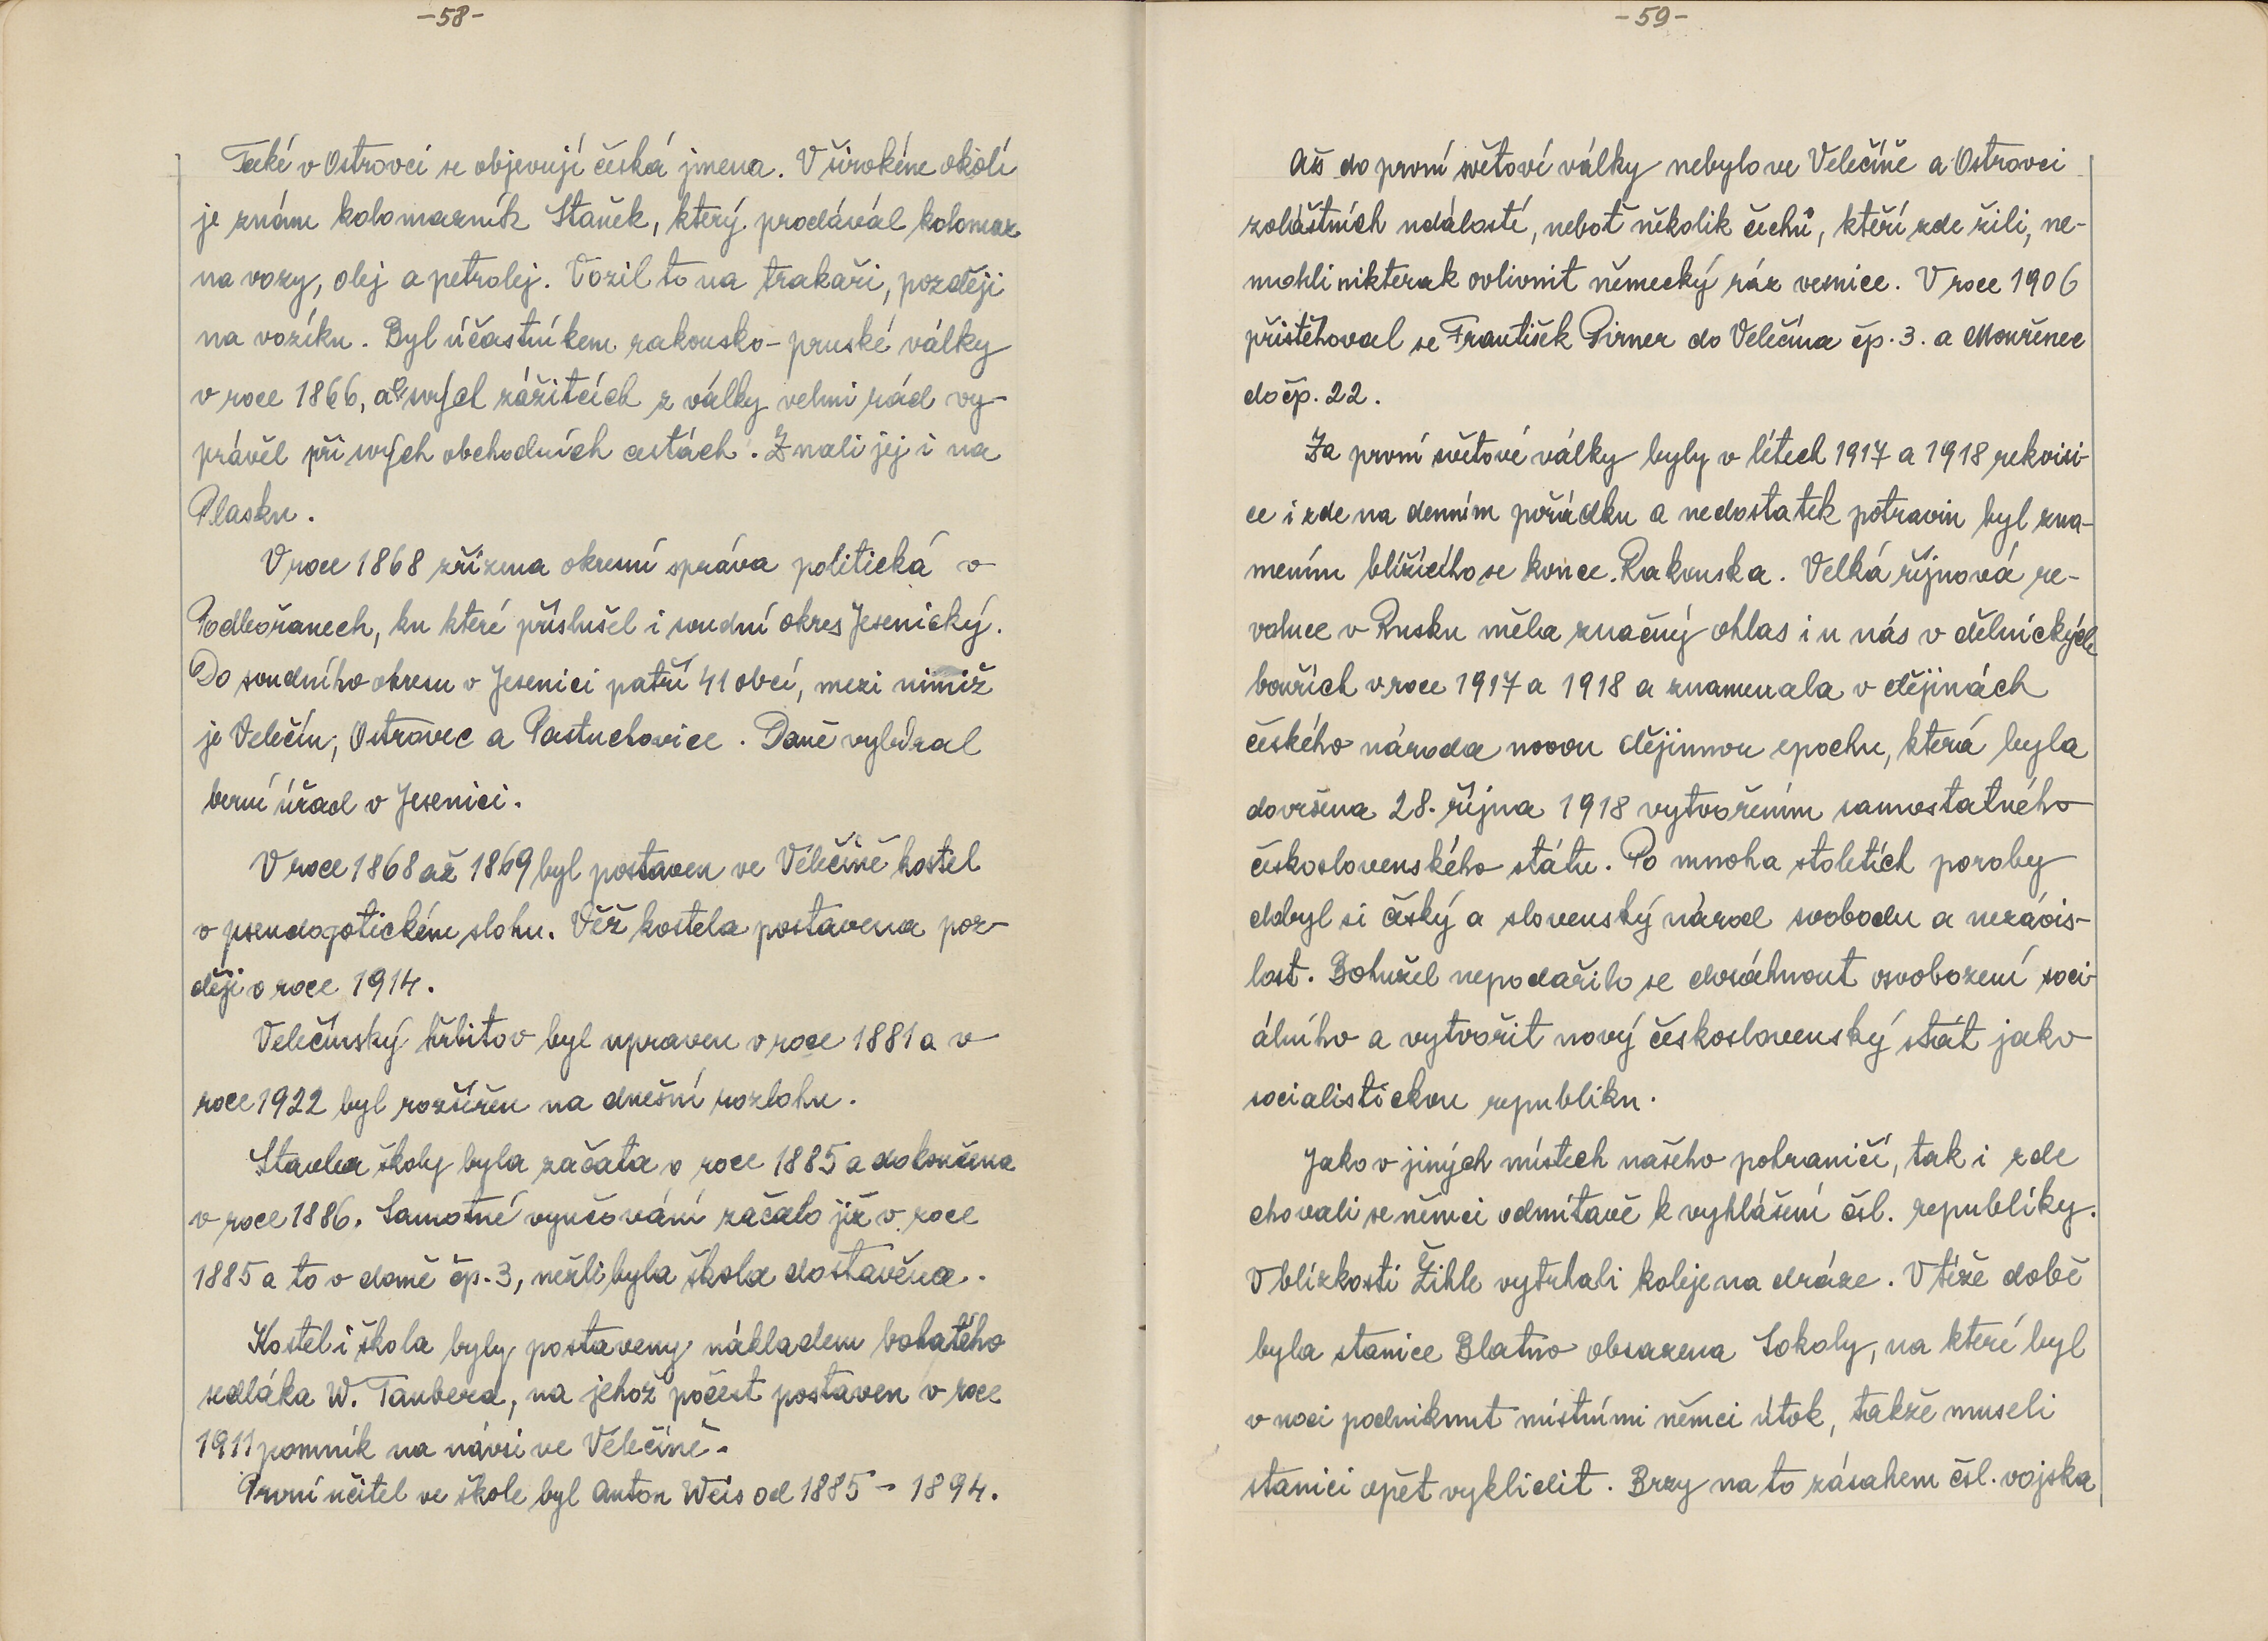 -58-
Také v Ostrovci se objevují česká jmena. V širokém okolí
je znám kolomazník Staněk, který prodával kolomaz
na vozy, olej a petrolej. Vozil to na trakaři, později
na vozíku. Byl účastníkem rakousko-pruské války
v roce 1866, a o svých zážitcích z války velmi rád vy-
právěl při svých obchodních cestách. Znali jej i na
Plasku.
V roce 1868 zřízena okresní správa politická v
Podbořanech, ku které příslušel i soudní okres Jesenický.
Do soudního okresu v Jesenici patří 41 obcí, mezi nimiž
je Velečín, Ostrovec a Pastuchovice. Daně vybíral
berní úřad v Jesenici.
V roce 1868 až 1869 byl postaven ve Velečíně kostel
v pseudogotickém slohu. Věž kostela postavena poz-
ději v roce 1914.
Velečínský hřbitov byl upraven v roce 1881 a v
roce 1922 byl rozšířen na dnešní rozlohu.
Stavba školy byla začata v roce 1885 a dokončena
v roce 1886. Samotné vyučování začalo již v roce
1885 a to v domě čp. 3, nežli byla škola dostavěna.
Kostel i škola byly postaveny nákladem bohatého
sedláka W. Taubera, na jehož počest postaven v roce
1911 pomník na návsi ve Velečíně.
První učitel ve škole byl Anton Weis od 1885 - 1894.
-59-
Až do první světové války nebylo ve Velečíně a Ostrovci
zvláštních událostí, neboť několik čechů, kteří zde žili, ne-
mohli nikterak ovlivnit německý ráz vesnice. V roce 1906
přistěhoval se František Pirner do Velečína čp. 3. a Mouřenec
do čp. 22.
Za první světové války byly v létech 1917 a 1918 rekvisi-
ce i zde na denním pořádku a nedostatek potravin byl zna-
mením blížícího se konce Rakouska. Velká říjnová re-
voluce v Rusku měla značný ohlas i u nás v dělnických
bouřích v roce 1917 a 1918 a znamenala v dějinách
českého národa novou dějinnou epochu, která byla
dovršena 28. října 1918 vytvořením samostatného
československého státu. Po mnoha stoletích poroby
dobyl si český a slovenský národ svobodu a nezávis-
lost. Bohužel nepodařilo se dosáhnout osvobození soci-
álního a vytvořit nový československý stát jako
socialistickou republiku.
Jako v jiných místech našeho pohraničí, tak i zde
chovali se němci odmítavě k vyhlášení čsl. republiky.
V blízkosti Žihle vytrhali koleje na dráze. V téže době
byla stanice Blatno obsazena Sokoly, na které byl
v noci podniknut místními němci útok, takže museli
stanici opět vyklidit. Brzy na to zásahem čsl. vojska